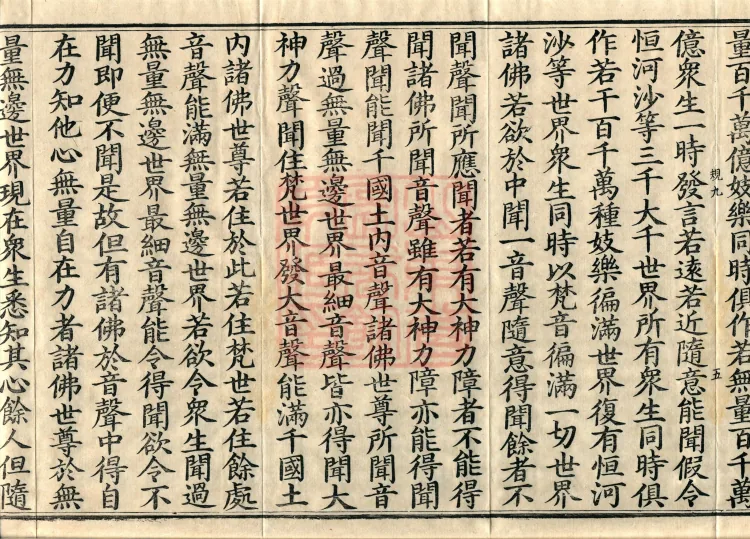 量百千萬億妓樂同時俱作若無量百千萬
規九 五
億衆生一時發言若遠若近隨意能聞假令
恒河沙等三千大千世界所有衆生同時俱
作若干百千萬種妓樂徧滿世界復有恒河
沙等世界衆生同時以梵音徧滿一切世界
諸佛若欲於中聞一音聲隨意得聞餘者不
聞聲聞所應聞者若有大神力障者不能得
聞諸佛所聞音聲雖有大神力障亦能得聞
聲聞能聞千國土内音聲諸佛世尊所聞音
聲過無量無邊世界最細音聲皆亦得聞大
神力聲聞住梵世界發大音聲能滿千國土
内諸佛世尊若住於此若住梵世若住餘處
音聲能滿無量無邊世界若欲令衆生聞過
無量無邊世界最細音聲能令得聞欲令不
聞即便不聞是故但有諸佛於音聲中得自
在力知他心無量自在力者諸佛世尊於無
量無邊世界現在衆生悉知其心餘人但隨